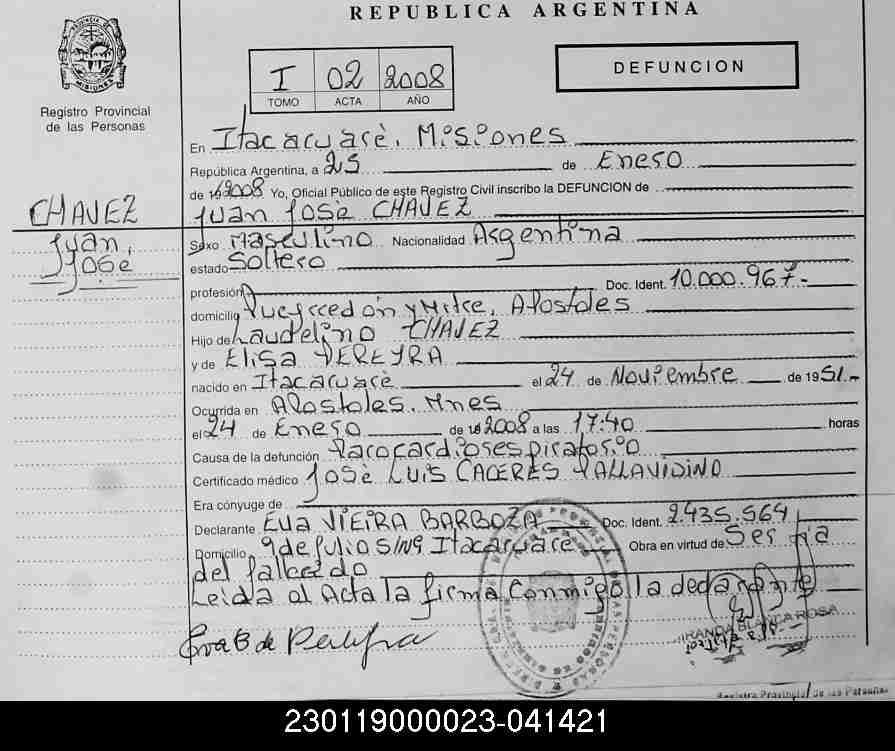 REPUBLICA ARGENTINA
I 02 2008
TOMO ACTA AÑO
DEFUNCION
PROVINCIA DE
MISIONES
Registro Provincial
de las Personas
CHAVEZ
Juan
José
En Itacaruarè, Misiones
República Argentina, a 25 de Eneso
de 2008 Yo, Oficial Público de este Registro Civil inscribo la DEFUNCION de
Juan José CHAVEZ
Sexo Masculino Nacionalidad Argentina
estado Soltero
profesión Doc. Ident. 10.000.967-
domicilio Pueyrredón y Mitre, Apostoles
Hijo de Laudelino CHAVEZ
y de Elisa PEREYRA
nacido en Itacaruarè el 24 de Noviembre de 1951.-
Ocurrida en Apostoles. Mnes
el 24 de Eneso de 2008 a las 17:40 horas
Causa de la defunción Parocardiosespiratosio
Certificado médico José LUIS CACERES PALLAVIDINO
Era cónyuge de
Declarante Eva VIEIRA BARBOZA Doc. Ident. 2.435.564
Domicilio 9 de Julio S/Nº Itacaruare Obra en virtud de Ser tia
del fallecido
Leida al Acta la firma Conmigo la declarante
Eva B de
MIRANDA BLANCA ROSA
Registro Provincial de las Personas
230119000023-041421